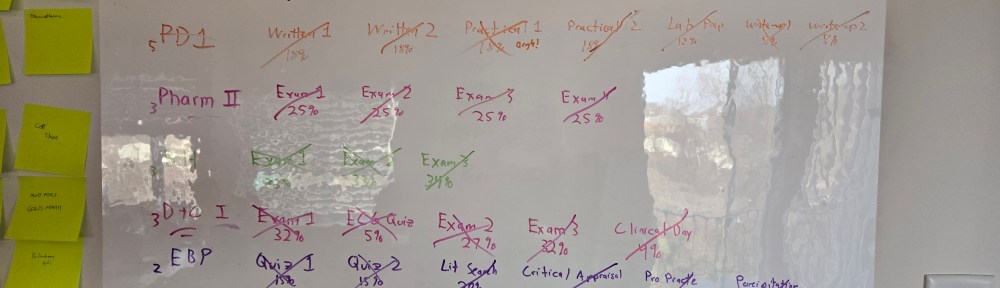 5 PD1 Written 1 Written 2 Practical 1 Practical 2 Lab Pap writeup1 writeup2
18% 18% 15% argh! 15% 12% 5% 5%
3 Pharm II Exam 1 Exam 2 Exam 3 Exam 4
25% 25% 25% 25%
Exam 1 Exam 2 Exam 3
33% 33% 34%
3 D+Q I Exam 1 ECG Quiz Exam 2 Exam 3 Clinical Day
32% 5% 27% 32% 4%
2 EBP Quiz 1 Quiz 2 Lit Search Critical Appraisal Pro Practe Participation
15% 15% 20%